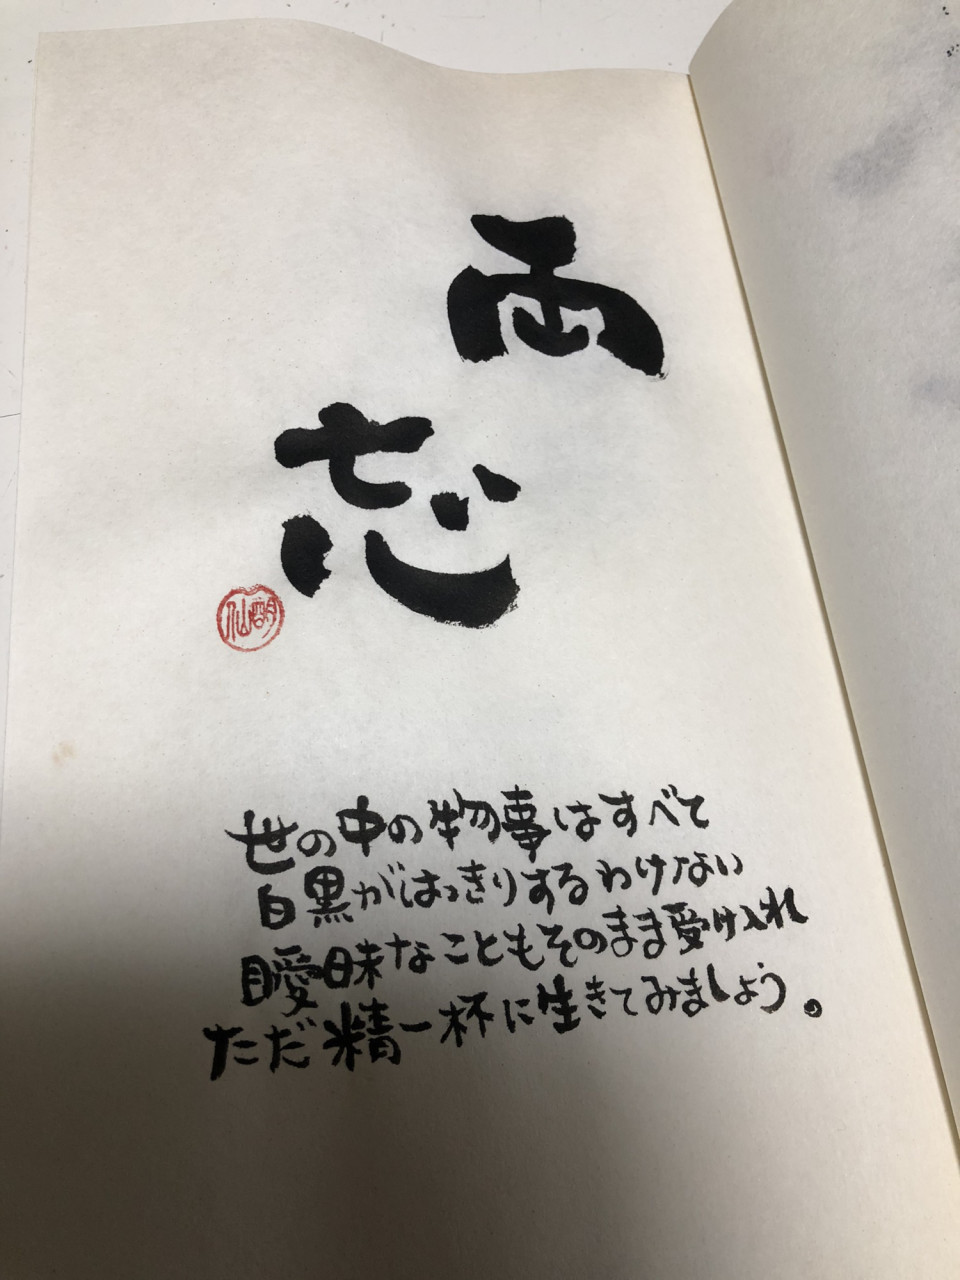 両
忘
世の中の物事はすべて
白黒がはっきりするわけない
曖昧なこともそのまま受け入れ
ただ精一杯に生きてみましょう。